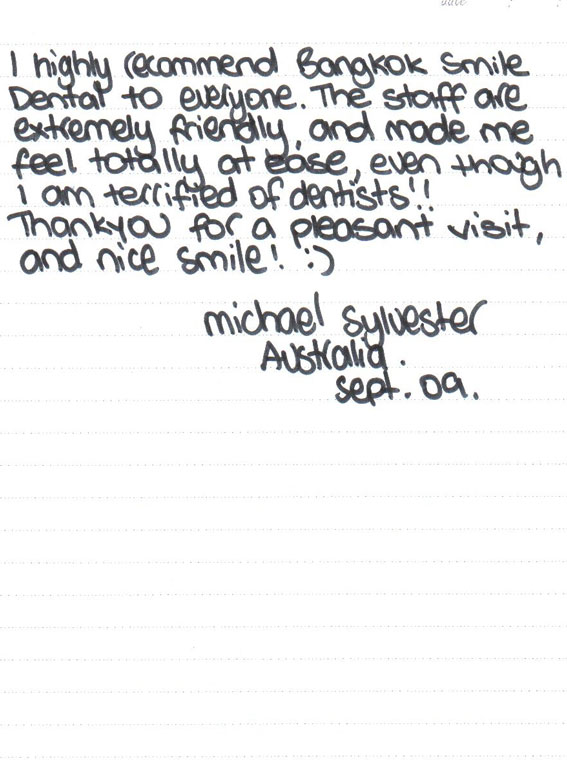 I highly recommend Bangkok Smile
Dental to everyone. The staff are
extremely friendly, and made me
feel totally at ease, even though
i am terrified of dentists!!
Thankyou for a pleasant visit,
and nice smile! :)
michael sylvester
Australia.
sept. 09.